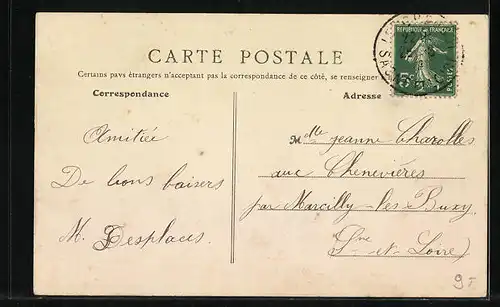 CARTE POSTALE
Certains pays étrangers n'acceptant pas la correspondance de ce côté, se renseigner
Correspondance
Adresse
REPUBLIQUE FRANÇAISE
5
POSTES
Amitiée
De bons baisers
M. Desplaces.
Mlle Jeanne Charolles
aux Chenevières
par Marcilly-les-Buxy
Sne-et-Loire)
9